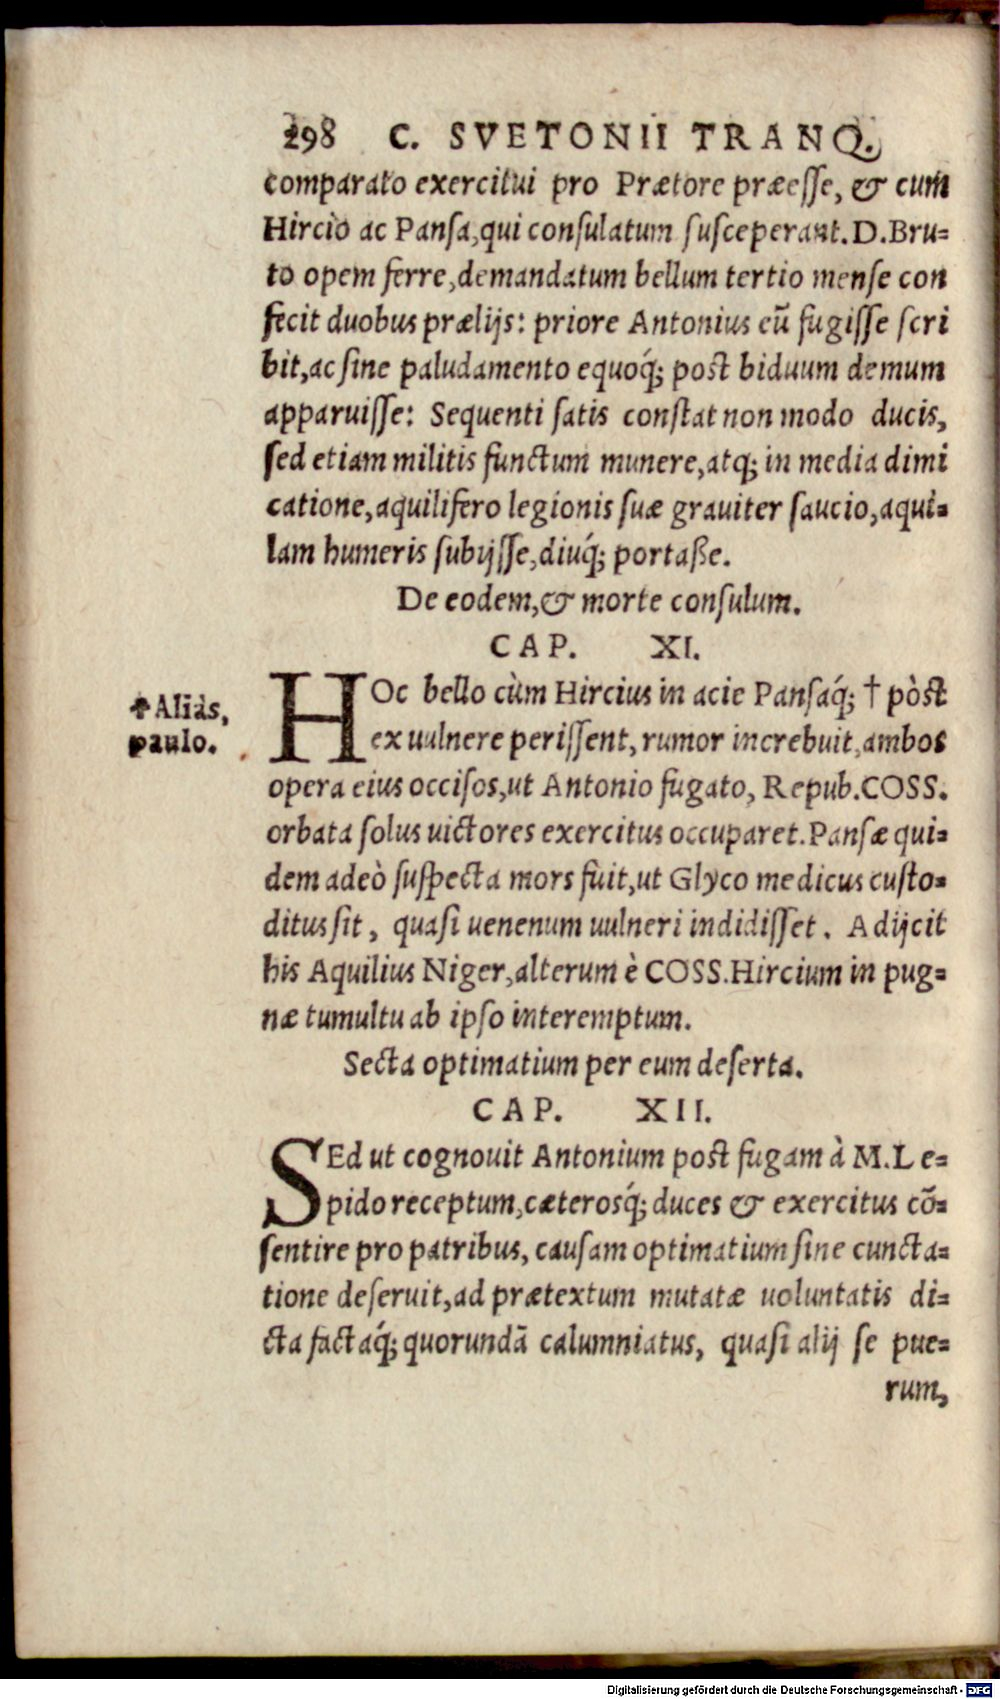 298 C. SVETONII TRANQ.
comparato exercitui pro Prætore præesse, & cum
Hircio ac Pansa, qui consulatum susceperant. D. Bru-
to opem ferre, demandatum bellum tertio mense con
fecit duobus prælijs: priore Antonius eũ fugisse scri
bit, ac sine paludamento equoq́; post biduum demum
apparuisse: Sequenti satis constat non modo ducis,
sed etiam militis functum munere, atq; in media dimi
catione, aquilifero legionis suæ grauiter saucio, aqui-
lam humeris subijsse, diuq́; portaße.
De eodem, & morte consulum.
CAP. XI.
HOc bello cùm Hircius in acie Pansaq́; † pòst
ex uulnere perissent, rumor increbuit, ambos
✝Aliàs,
paulo.
opera eius occisos, ut Antonio fugato, Repub. COSS.
orbata solus uictores exercitus occuparet. Pansæ qui-
dem adeò suspecta mors fuit, ut Glyco medicus custo-
ditus sit, quasi uenenum uulneri indidisset. Adijcit
his Aquilius Niger, alterum è COSS. Hircium in pug-
næ tumultu ab ipso interemptum.
Secta optimatium per eum deserta.
CAP. XII.
SEd ut cognouit Antonium post fugam à M. Le-
pido receptum, cæterosq́; duces & exercitus cõ-
sentire pro patribus, causam optimatium sine cuncta-
tione deseruit, ad prætextum mutatæ uoluntatis di-
cta factaq́; quorundã calumniatus, quasi alij se pue-
rum,
Digitalisierung gefördert durch die Deutsche Forschungsgemeinschaft - DFG